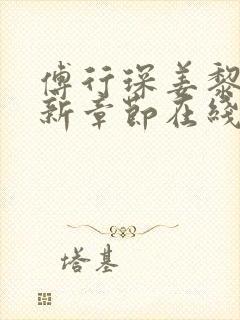 傅行琛姜黎
新章节在线
塔基